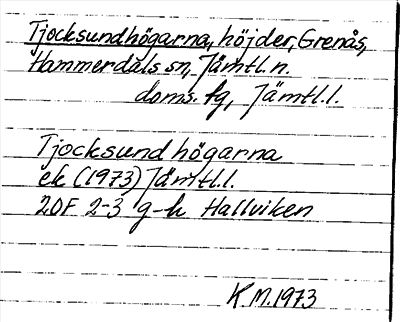 Tjocksundhögarna, höjder, Grenås,
Hammerdals sn, Jämtl. n.
doms. fg, Jämtl.l.
Tjocksundhögarna
ek (1973) Jämtl.l.
20F 2-3 g-h Hallviken
K.M. 1973